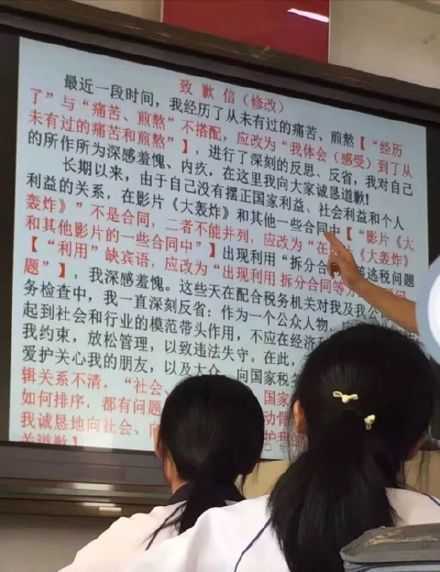 致 歉 信（修改）
最近一段时间，我经历了从未有过的痛苦、煎熬【“经历
了”与“痛苦、煎熬”不搭配，应改为“我体会（感受）到了从
未有过的痛苦和煎熬”】，进行了深刻的反思、反省，我对自己
的所作所为深感羞愧、内疚，在这里我向大家诚恳道歉！
长期以来，由于自己没有摆正国家利益、社会利益和个人
利益的关系，在影片《大轰炸》和其他一些合同中【“影片《大
轰炸》”不是合同，二者不能并列，应改为“在 《大轰炸》
和其他影片的一些合同中”】出现利用“拆分合 逃税问题
【“利用”缺宾语，应改为“出现利用 拆分合同等方
题”】，我深感羞愧。这些天在配合税务机关对我及我公
务检查中，我一直深刻反省：作为一个公众人物，
起到社会和行业的模范带头作用，不应在经济
我约束，放松管理，以致违法失守。在此，
爱护关心我的朋友，以及大众，向国家税务
辑关系不清，“社会、 国家
如何排序，都有问题
我诚恳地向社会、
关道歉】